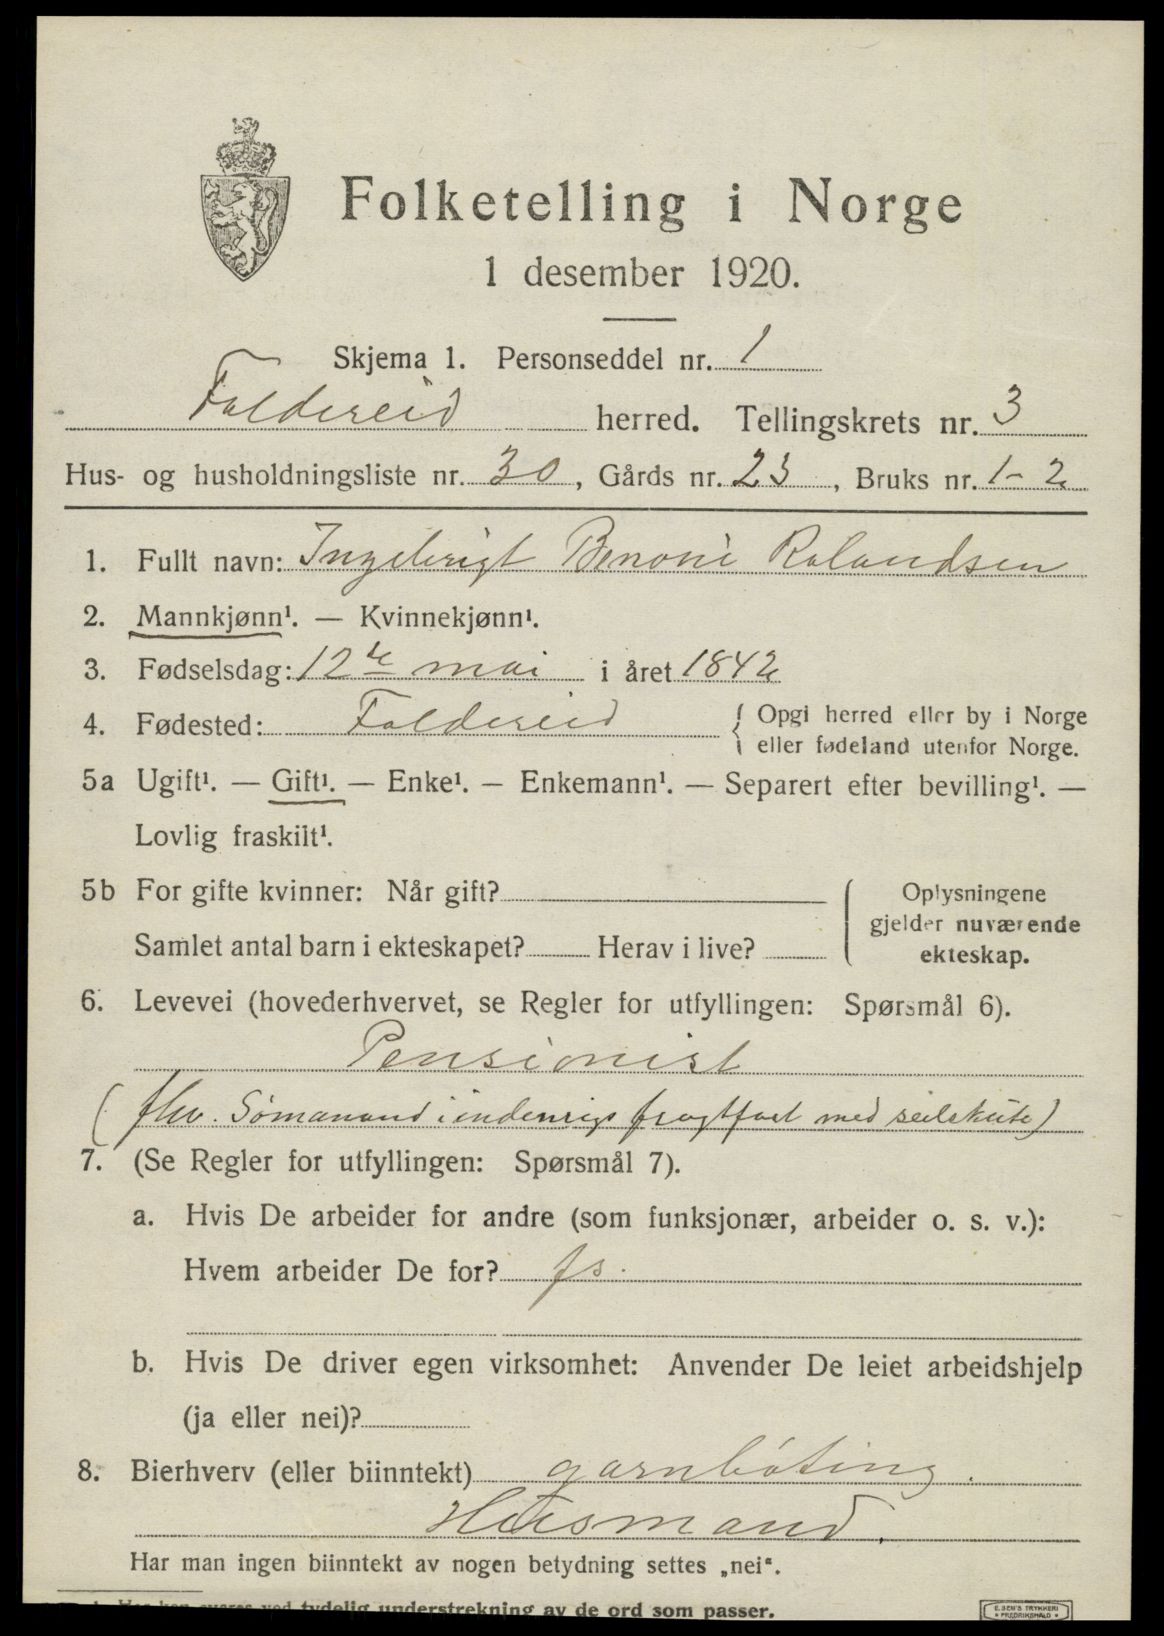 Folketelling i Norge
1 desember 1920.
Skjema 1. Personseddel nr. 1
Foldereid herred. Tellingskrets nr. 3
Hus- og husholdningsliste nr. 30, Gårds nr. 23, Bruks nr. 1-2
1. Fullt navn: Ingebrigt Benoni Rolandsen
2. Mannkjønn¹. — Kvinnekjønn¹.
3. Fødselsdag: 12te mai i året 1842
4. Fødested: Foldereid { Opgi herred eller by i Norge
eller fødeland utenfor Norge.
5a Ugift¹. — Gift¹. — Enke¹. — Enkemann¹. — Separert efter bevilling¹. —
Lovlig fraskilt¹.
5b For gifte kvinner: Når gift?
Samlet antal barn i ekteskapet? Herav i live?
{ Oplysningene
gjelder nuværende
ekteskap.
6. Levevei (hovederhvervet, se Regler for utfyllingen: Spørsmål 6).
Pensionist
( fhv. Sømanand i indenrigs fragtfart med seilskute)
7. (Se Regler for utfyllingen: Spørsmål 7).
a. Hvis De arbeider for andre (som funksjonær, arbeider o. s. v.):
Hvem arbeider De for? fs.
b. Hvis De driver egen virksomhet: Anvender De leiet arbeidshjelp
(ja eller nei)?
8. Bierhverv (eller biinntekt) garnbøting.
Husmand.
Har man ingen biinntekt av nogen betydning settes „nei“.
tydelig understrekning av de ord som passer.
E. SEM'S TRYKKERI
* FREDRIKSHALD *